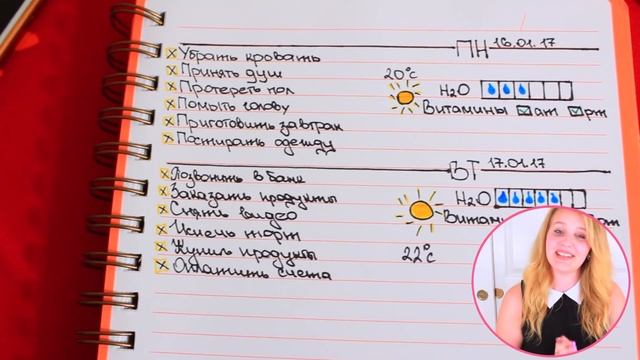 ПН 16.01.17
× Убрать кровать
× Принять душ
20°C
× Протереть пол
H₂O
× Помыть голову
Витамины ам рм
× Приготовить завтрак
× Постирать одежду
ВТ 17.01.17
× Позвонить в банк
× Заказать продукты
H₂O
× Снять видео
× Испечь торт
× Купить продукты
22°C
× Оплатить счета